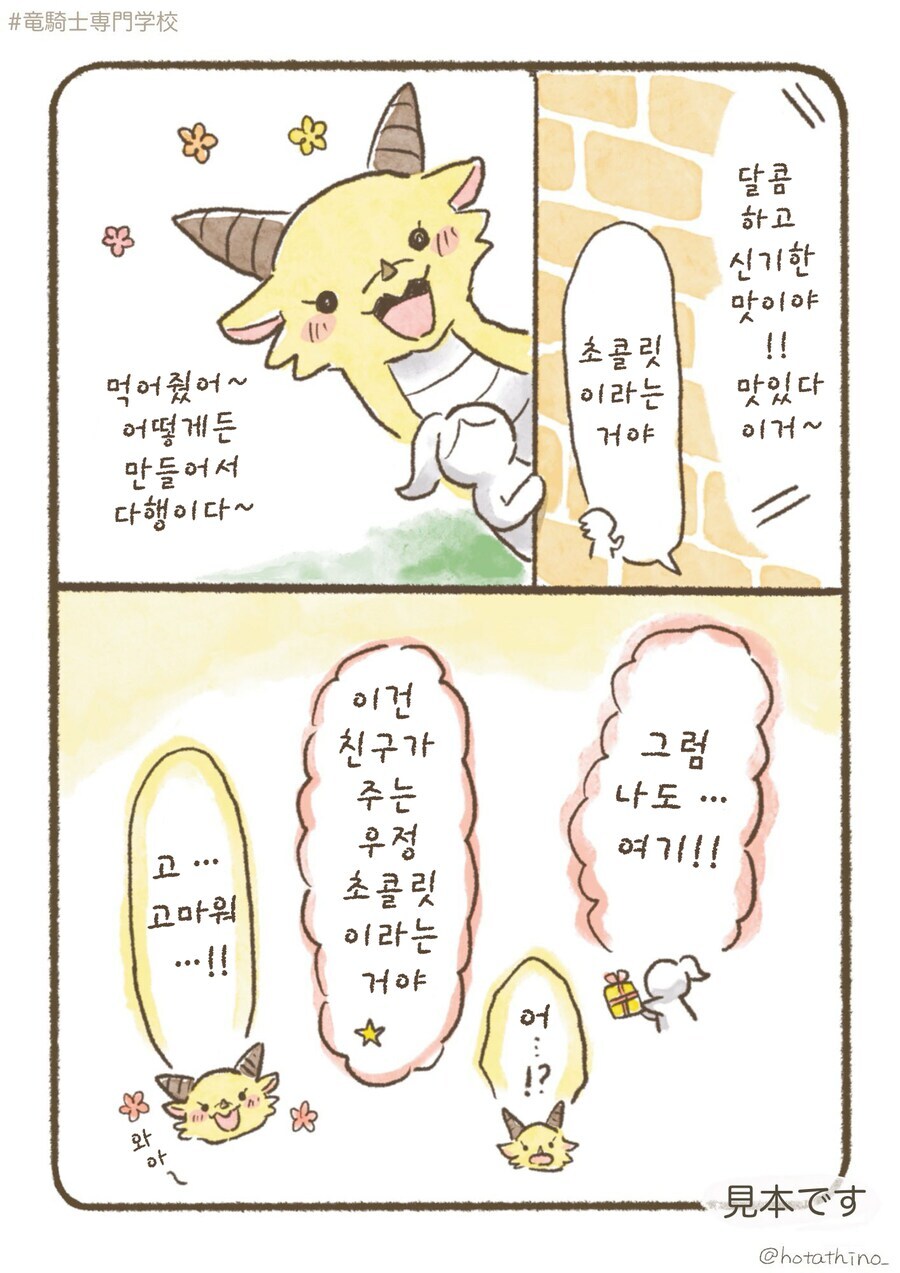 #竜騎士専門学校
달콤
하고
신기한
맛이야
!!
맛있다
이거~
초콜릿
이라는
거야
먹어줬어~
어떻게든
만들어서
다행이다~
그럼
나도 …
여기!!
어
…
!?
이건
친구가
주는
우정
초콜릿
이라는
거야
고 …
고마워
…!!
와
아
~
見本です
@hotathino_